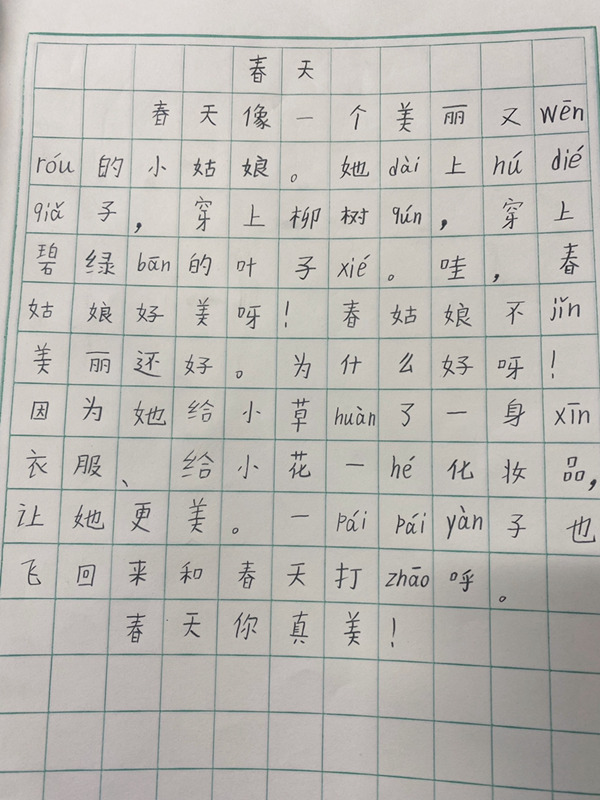 春天
春天像一个美丽又wēn
róu的小姑娘。她dài上hú dié
qiǎ子，穿上柳树qún，穿上
碧绿bān的叶子xié。哇，春
姑娘好美呀！春姑娘不jǐn
美丽还好。为什么好呀！
因为她给小草huàn了一身xīn
衣服、给小花一hé化妆品，
让她更美。一pái pái yàn子也
飞回来和春天打zhāo呼。
春天你真美！